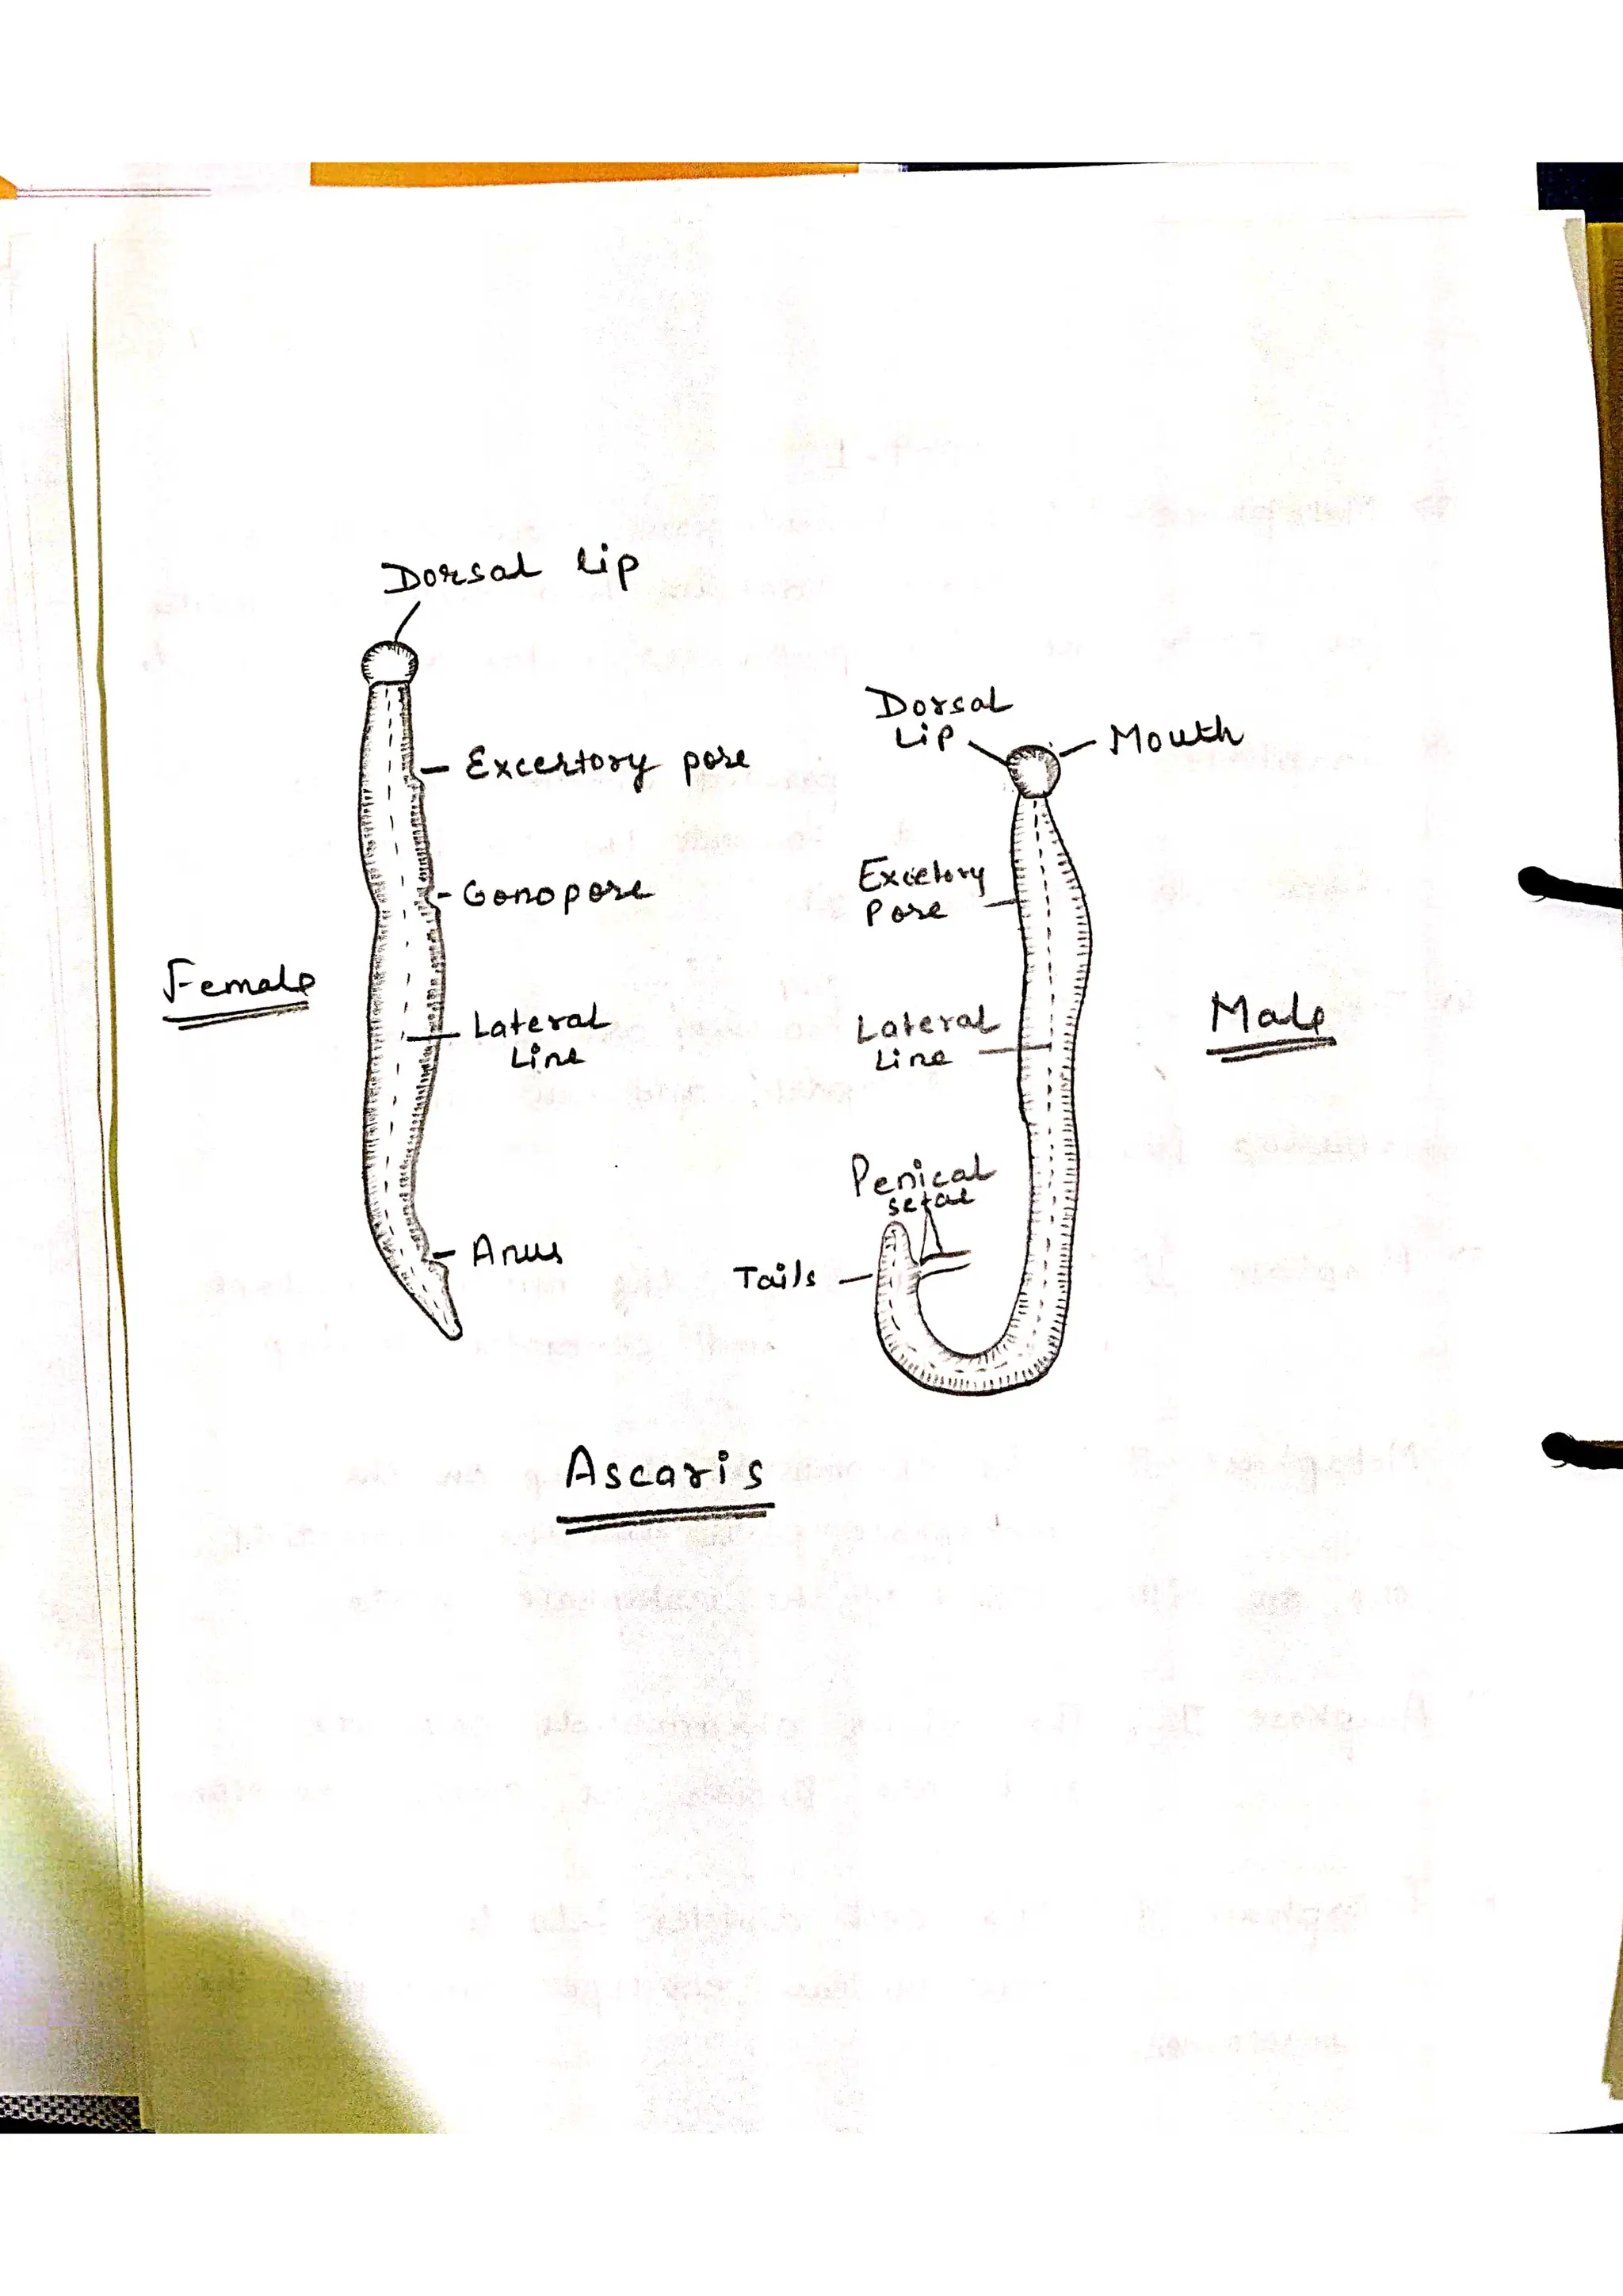 Dorsal lip
Excertory pore
Gonopore
Female
Lateral
Line
Anus
Dorsal
Lip
Mouth
Excetory
Pore
Lateral
Line
Male
Penical
setae
Tails
Ascaris